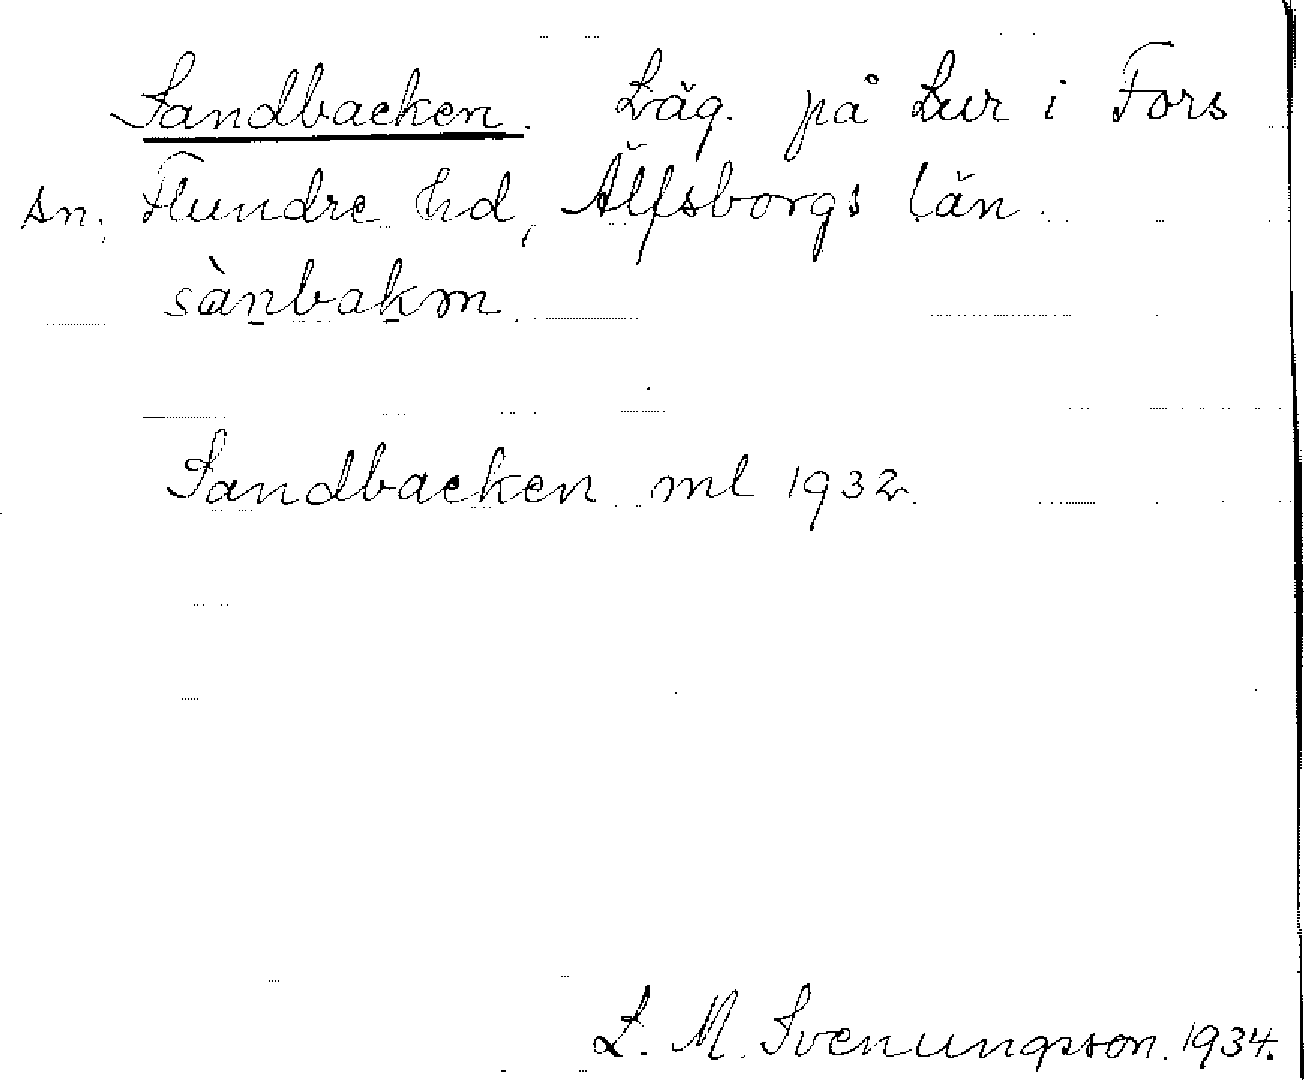 Sandbacken. Läg. på Lur i Fors
sn. Flundre hd, Älfsborgs län.
sànbakm.
Sandbacken ml 1932.
L. M. Svenungsson. 1934.